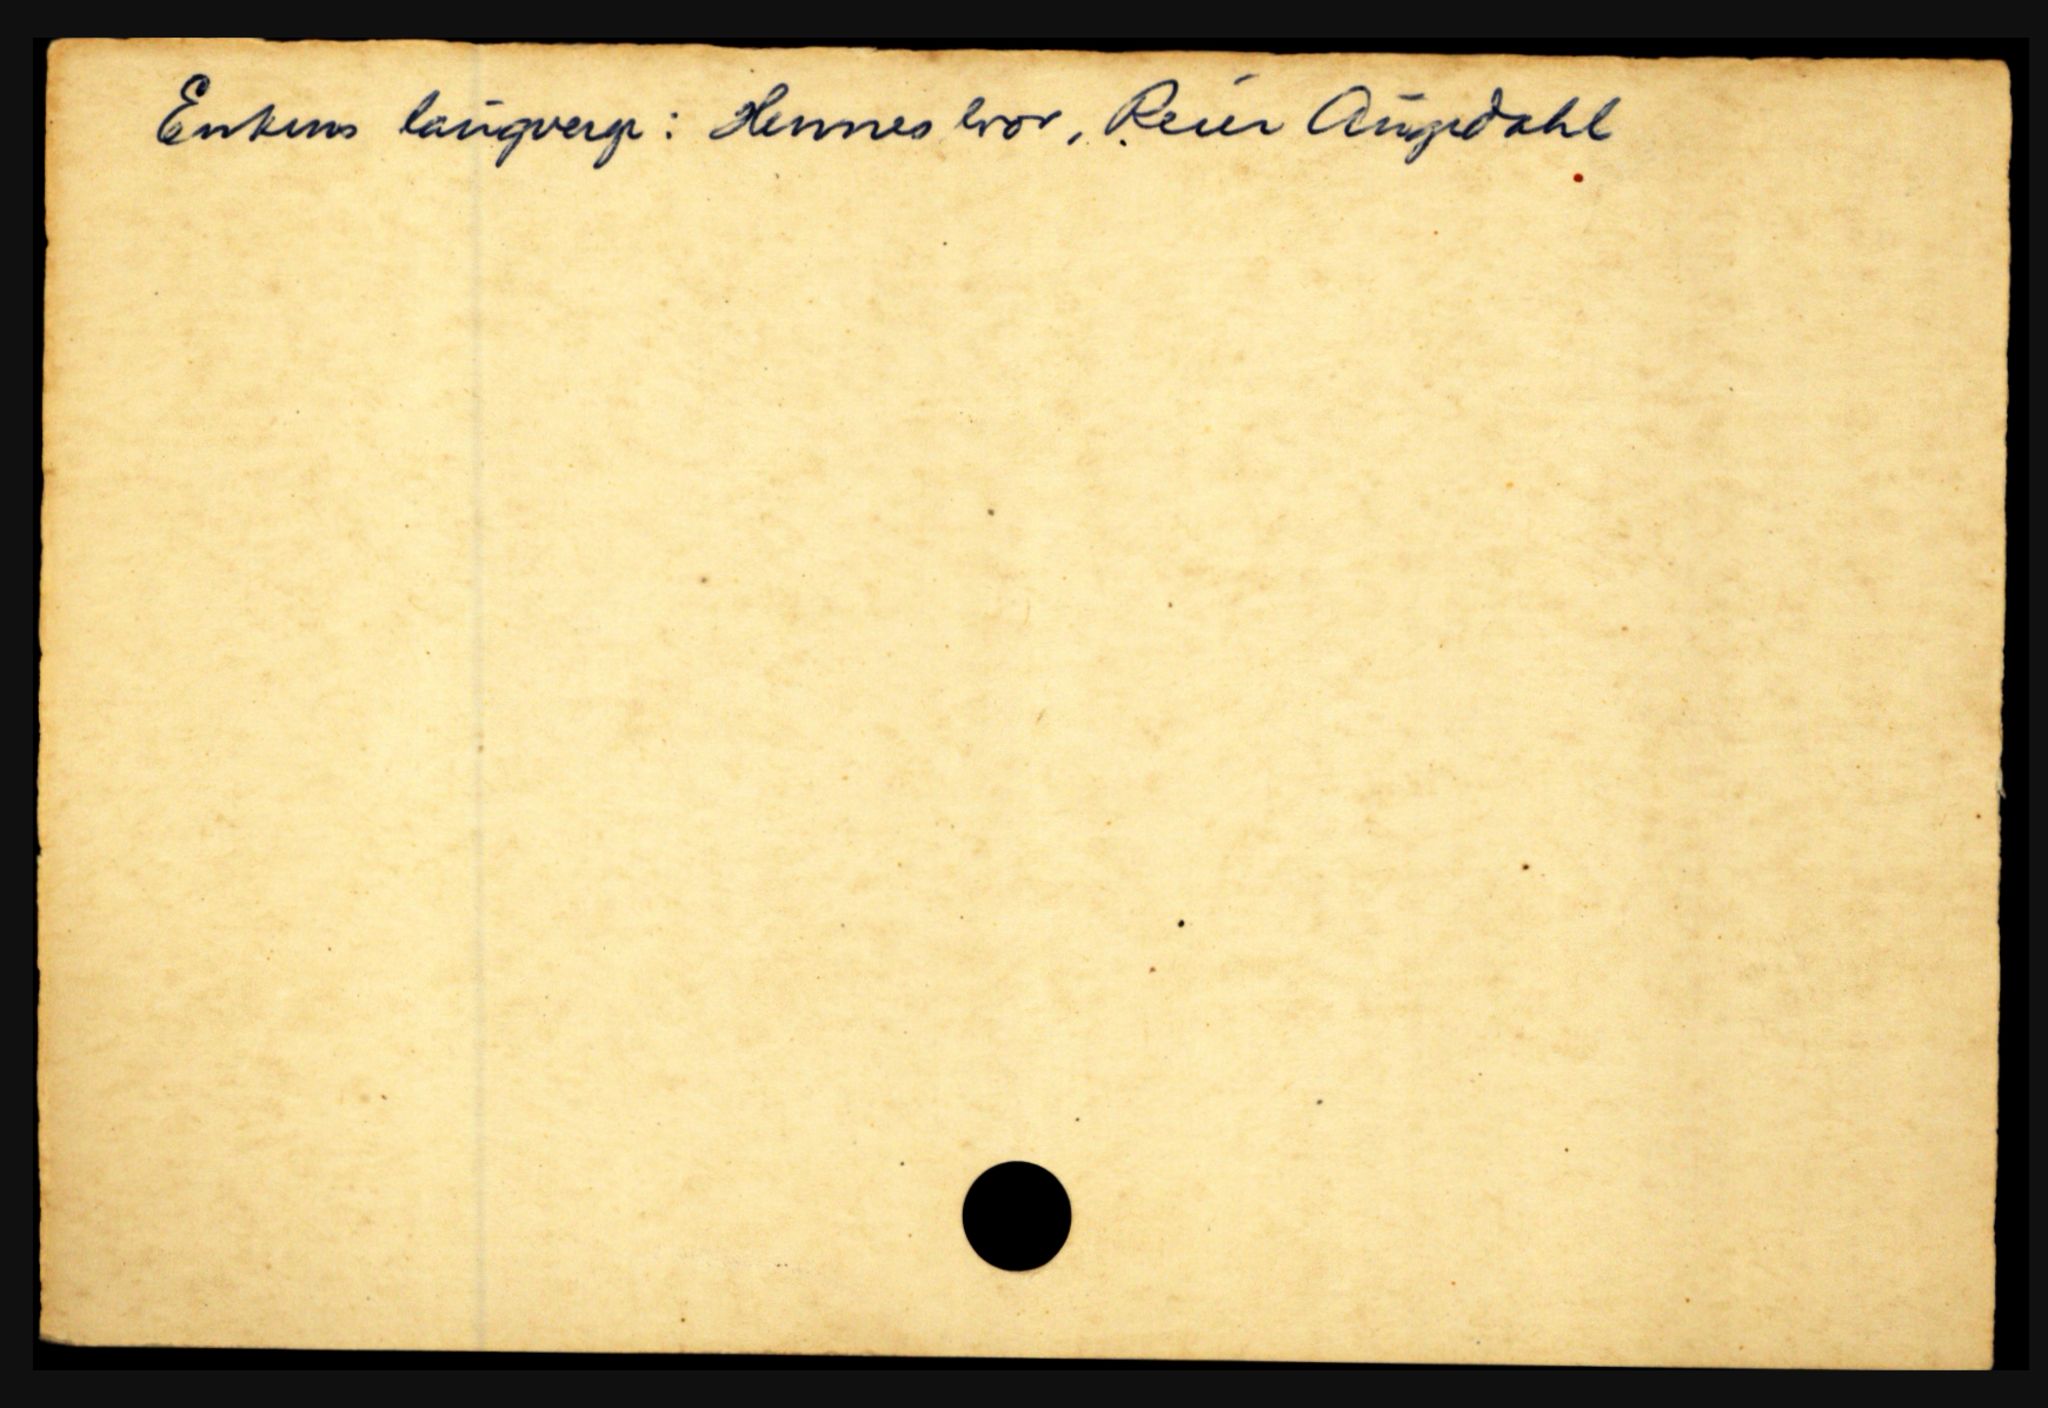 Enkens laugverge: Hennes bror, Reier Augedahl